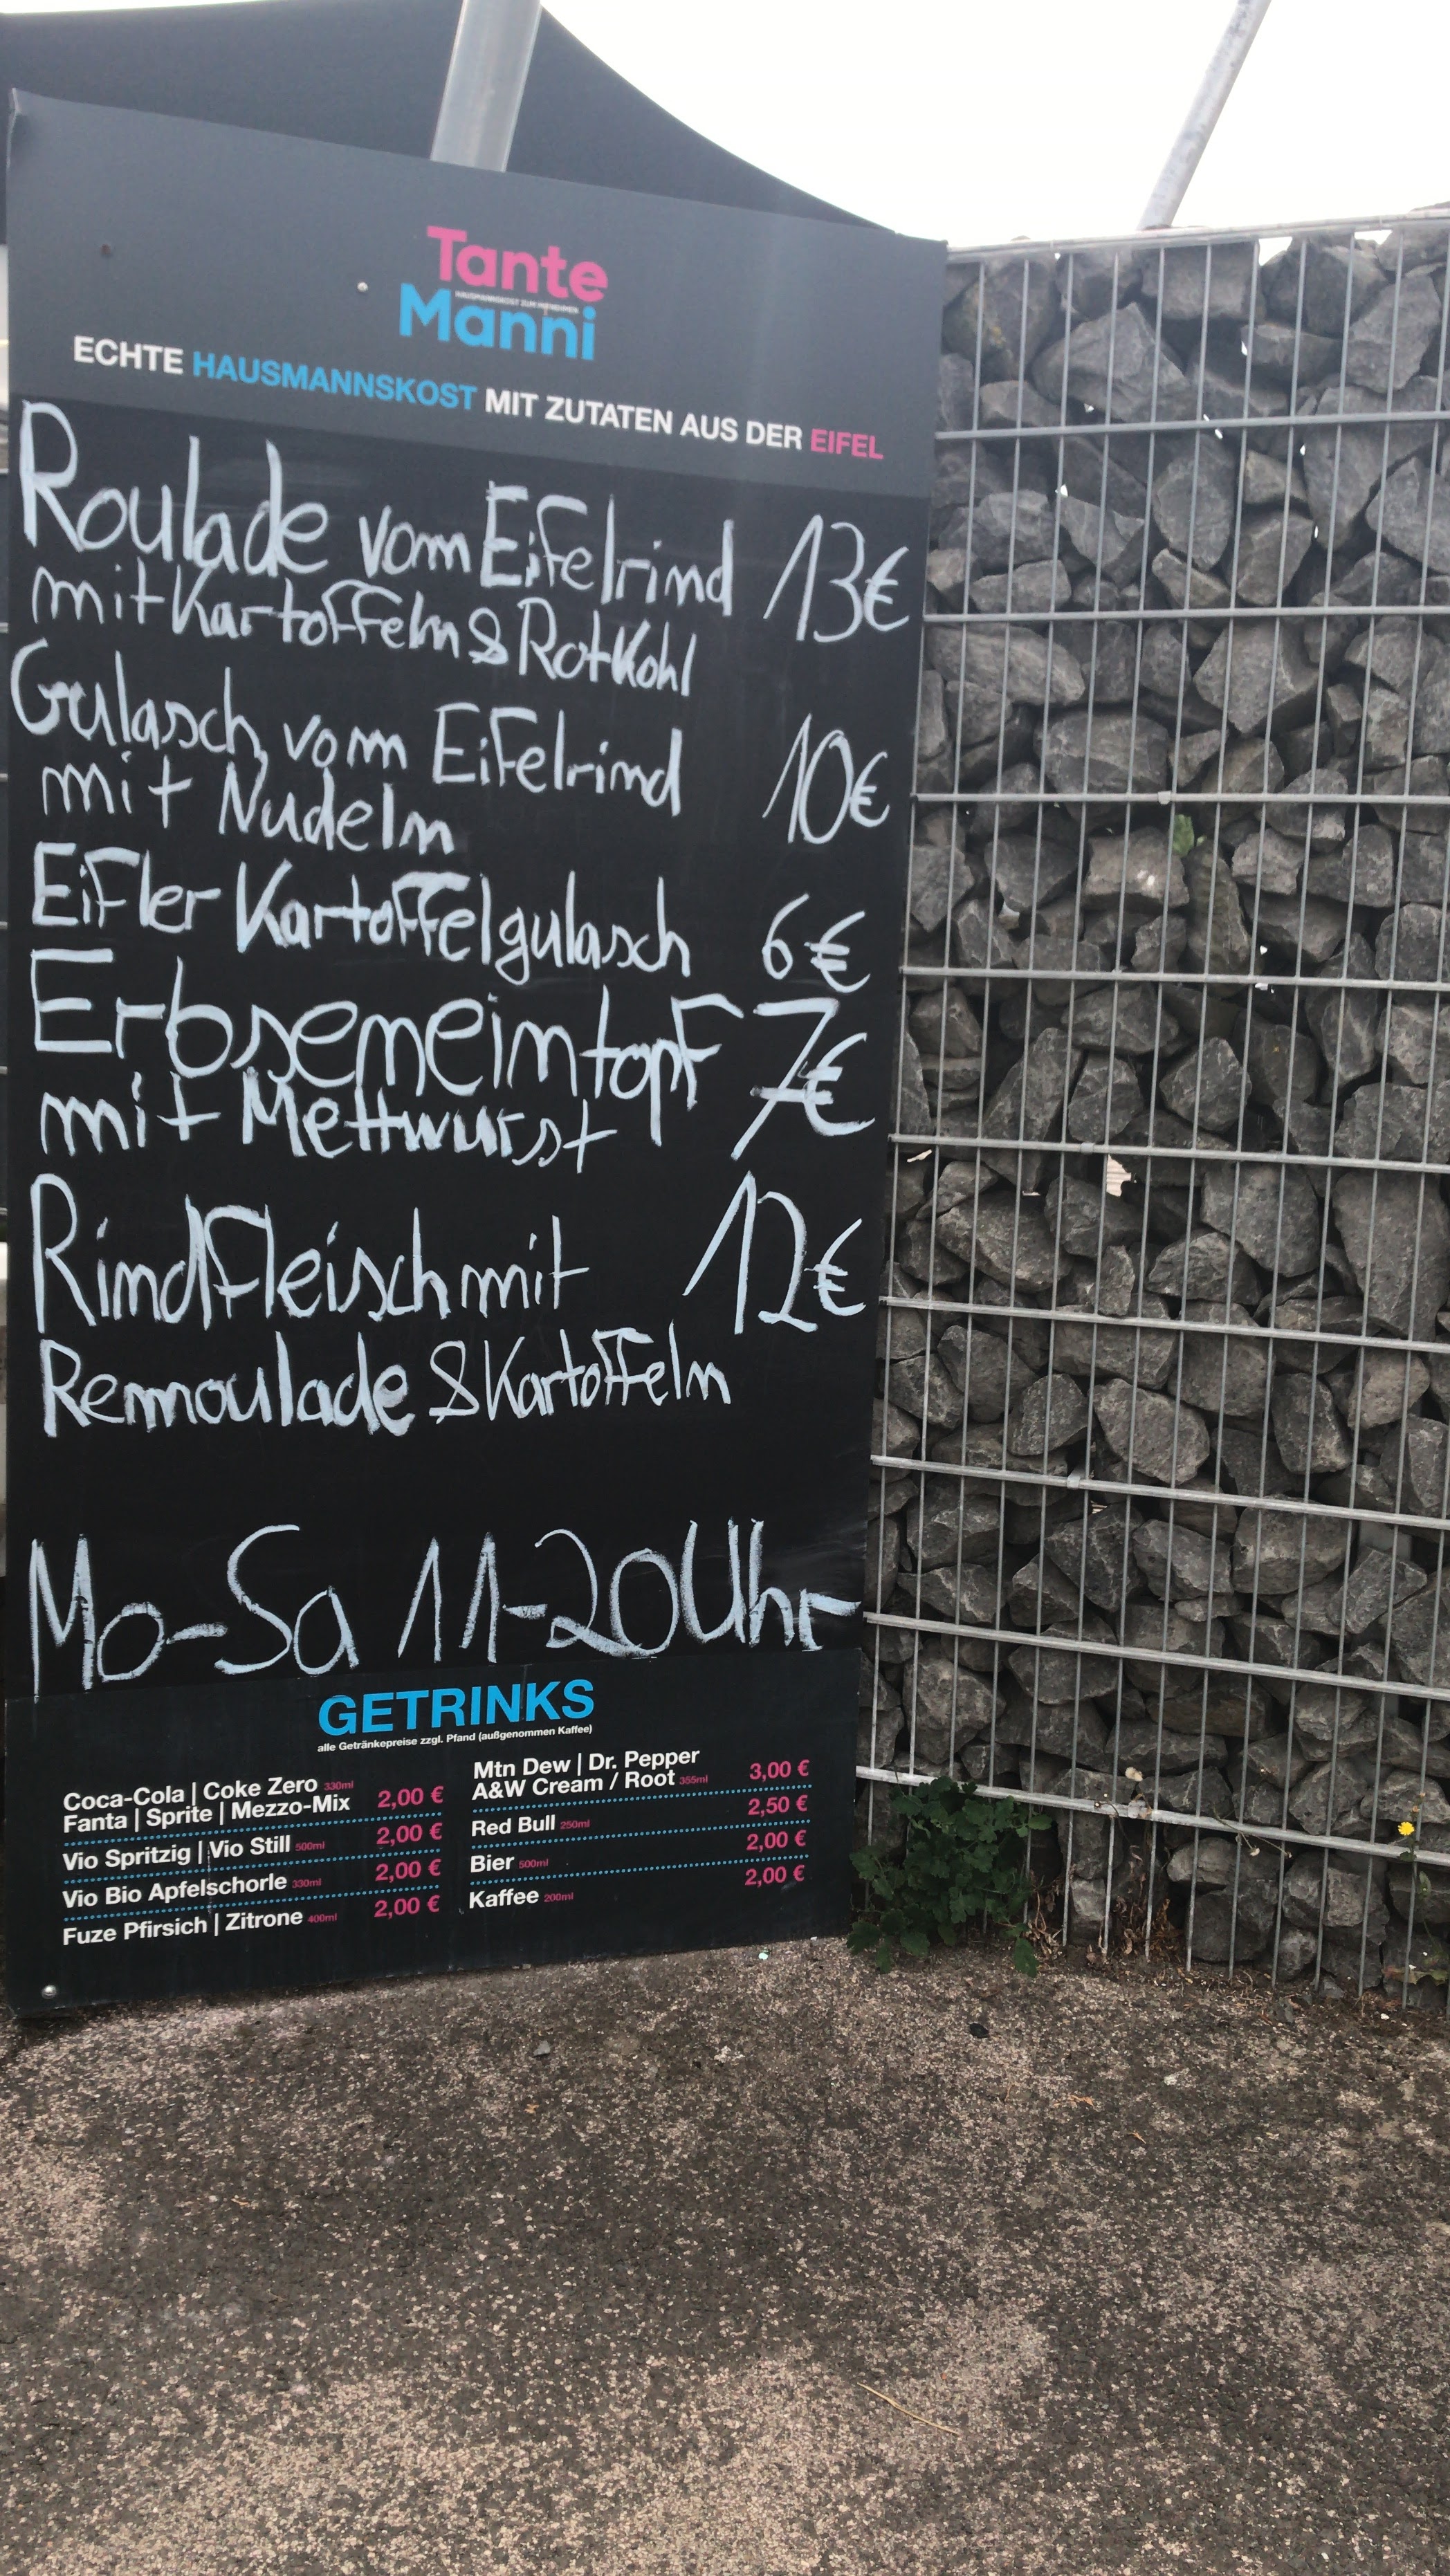 Tante
HAUSMANNSKOST ZUM MITNEHMEN
Manni
ECHTE HAUSMANNSKOST MIT ZUTATEN AUS DER EIFEL
Roulade vom Eifelrind 13€
mit Kartoffeln & Rotkohl
Gulasch vom Eifelrind 10€
mit Nudeln
Eifler Kartoffelgulasch 6€
Erbseneintopf 7€
mit Mettwurst
Rindfleisch mit 12€
Remoulade & Kartoffeln
Mo-Sa 11-20 Uhr
GETRINKS
alle Getränkepreise zzgl. Pfand (außgenommen Kaffee)
Coca-Cola | Coke Zero 330ml
Fanta | Sprite | Mezzo-Mix 2,00 €
Vio Spritzig | Vio Still 500ml 2,00 €
Vio Bio Apfelschorle 330ml 2,00 €
Fuze Pfirsich | Zitrone 400ml 2,00 €
Mtn Dew | Dr. Pepper
A&W Cream / Root 355ml 3,00 €
Red Bull 250ml 2,50 €
Bier 500ml 2,00 €
Kaffee 200ml 2,00 €